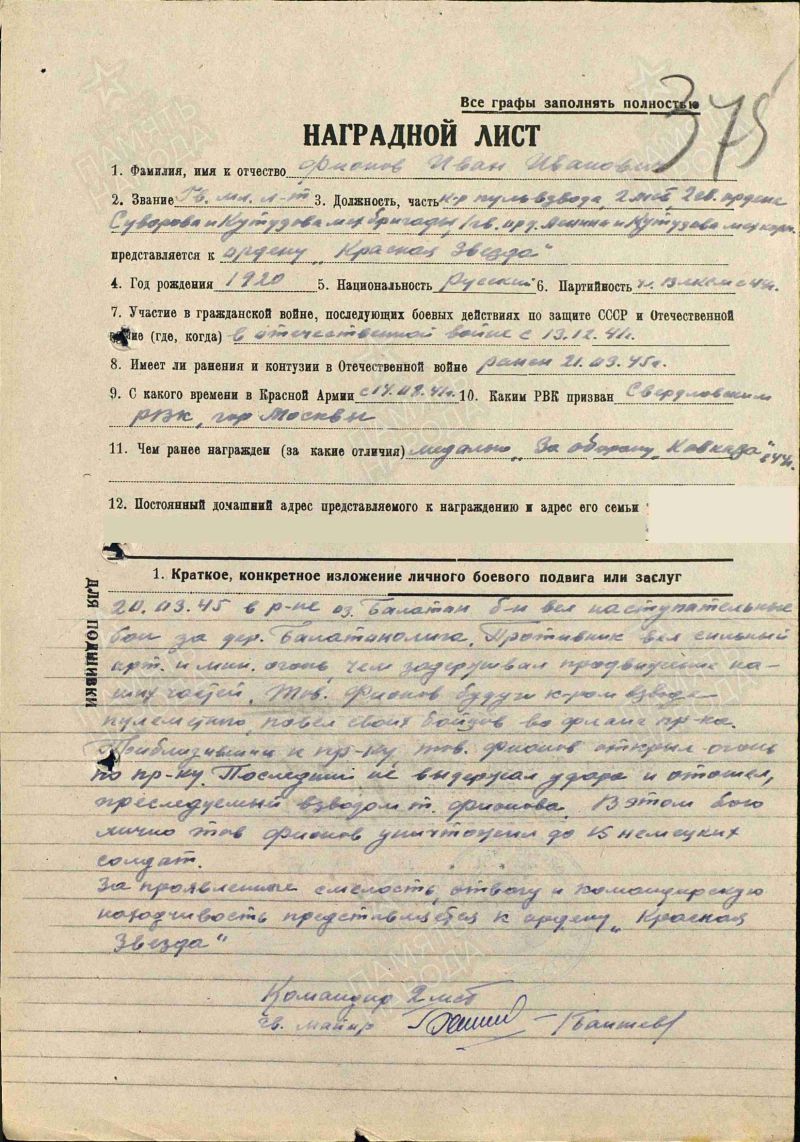 375
Все графы заполнять полностью
НАГРАДНОЙ ЛИСТ
1. Фамилия, имя к отчество Фионов Иван Иванович
2. Звание Гв. мл. л-т 3. Должность, часть к-р пульвзвода, 2 мсб, 2 гв. ордена
Суворова и Кутузова мех бригады 1 гв. орд. Ленина и Кутузова мех корп.
представляется к ордену „Красная Звезда"
4. Год рождения 1920 5. Национальность Русский 6. Партийность чл. ВЛКСМ с 44г.
7. Участие в гражданской войне, последующих боевых действиях по защите СССР и Отечественной
войне (где, когда) в отечественной войне с 13.12.41г.
8. Имеет ли ранения и контузии в Отечественной войне ранен 21.03.45г.
9. С какого времени в Красной Армии 10. Каким РВК призван Свердловским
РВК, гор Москвы
11. Чем ранее награжден (за какие отличия) медалью „За оборону Кавказа" 44г.
12. Постоянный домашний адрес представляемого к награждению и адрес его семьи
1. Краткое, конкретное изложение личного боевого подвига или заслуг
ДЛЯ ПОДШИВКИ
20.03.45 в р-не оз. Балатан б-н вел наступательные
бои за дер. Противник вел сильный
арт. и мин. огонь, чем задерживал продвижение на-
ших частей. Тов. Фионов будучи к-ром взвода
пулеметного, повел своих бойцов во фланг пр-ка.
Приблизившись к пр-ку, тов. Фионов открыл огонь
по пр-ку. Последний не выдержал удара и отошел,
преследуемый взводом т. Фионова. В этом бою
лично тов Фионов уничтожил до 15 немецких
солдат.
За проявленные смелость, отвагу и командирскую
находчивость представляется к ордену „Красная
Звезда"
Командир 2 мсб
гв. майор
ПАМЯТЬ НАРОДА